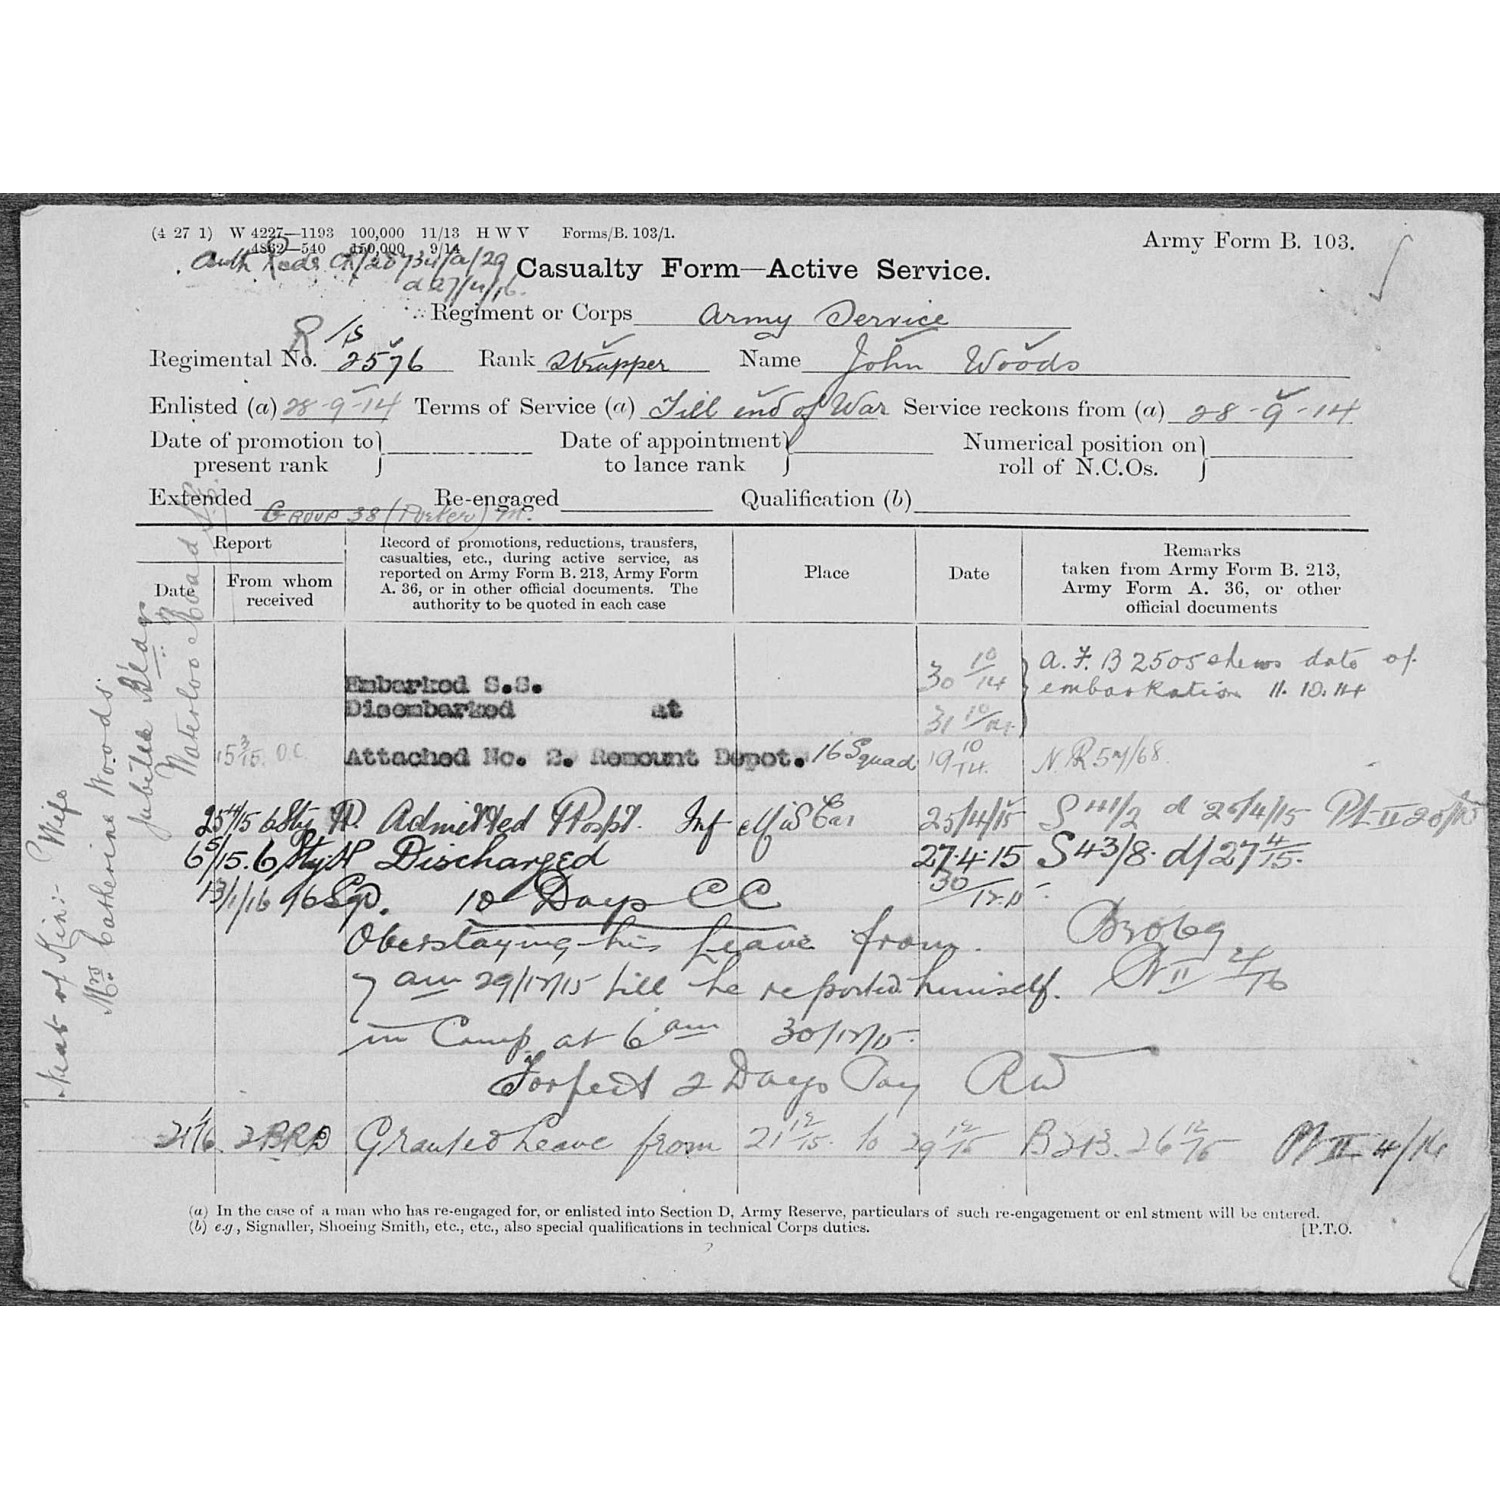 (4 27 1) W 4227—1193 100,000 11/13 H W V Forms/B. 103/1.
4862—540 150,000 9/14
Army Form B. 103.
Casualty Form—Active Service.
Regiment or Corps Army Service
R/S
Regimental No. 2576 Rank Strapper Name John Woods
Enlisted (a) 28-9-14 Terms of Service (a) Till end of War Service reckons from (a) 28-9-14
Date of promotion to present rank
Date of appointment to lance rank
Numerical position on roll of N.C.Os.
Extended Re-engaged Qualification (b)
Group 38 (Porter) M.
Report
Date
From whom received
Record of promotions, reductions, transfers, casualties, etc., during active service, as reported on Army Form B. 213, Army Form A. 36, or in other official documents. The authority to be quoted in each case
Place
Date
Remarks taken from Army Form B. 213, Army Form A. 36, or other official documents
Embarked S.S. 30 10/14 A.F. B2505 shews date of
Disembarked at 31 10/14 embarkation 11.10.14
15 3/15 O.C. Attached No. 2. Remount Depot. 16 Squad 19 10/14 N.R 5M/68
25 4/15 6 Sty H. Admitted Hospl. Inf 25/4/15 S 41/2 d 26/4/15 Pt II 20/15
6 5/15. 6 Sty H Discharged 27.4.15 S43/8. d/27 4/15.
13/1/16 16 Sqd. 10 Days CC 30/12.15
Overstaying his Leave from
7 am 29/12/15 till he reported himself.
in Camp at 6 am 30/12/15.
Forfeit 2 Days Pay RW
2 1/16. 2 BRD Granted Leave from 21 12/15. to 29 12/15 B213. 26 12/15 Pt II 4/16
Next of Kin:- Wife
Mrs Catherine Woods
Jubilee Bldgs
Waterloo Road
(a) In the case of a man who has re-engaged for, or enlisted into Section D, Army Reserve, particulars of such re-engagement or enlistment will be entered.
(b) e.g., Signaller, Shoeing Smith, etc., etc., also special qualifications in technical Corps duties.
[P.T.O.